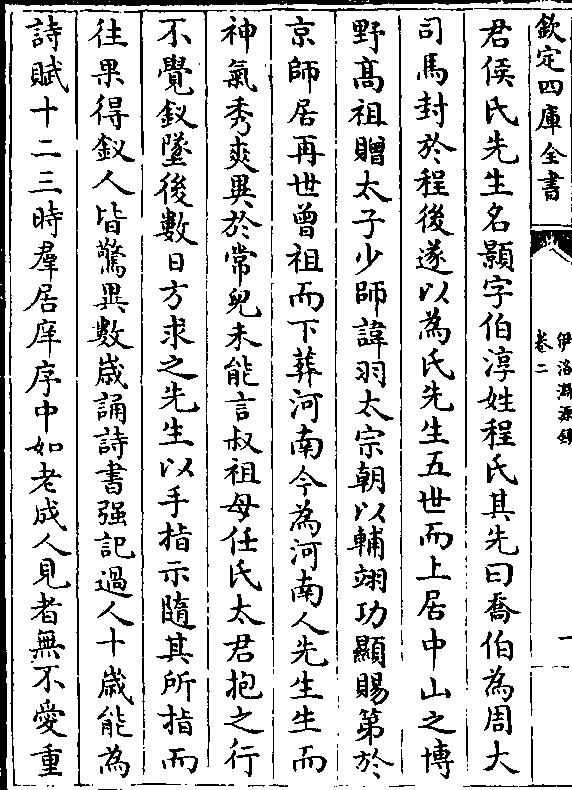 欽定四庫全書
伊洛淵源録
卷二
一
君侯氏先生名顥字伯淳姓程氏其先曰喬伯為周大
司馬封於程後遂以為氏先生五世而上居中山之博
野髙祖贈太子少師諱羽太宗朝以輔翊功顯賜第於
京師居再世曾祖而下葬河南今為河南人先生生而
神氣秀爽異於常兒未能言叔祖母任氏太君抱之行
不覺釵墜後數日方求之先生以手指示隨其所指而
往果得釵人皆驚異數歳誦詩書强記過人十歳能為
詩賦十二三時羣居庠序中如老成人見者無不愛重